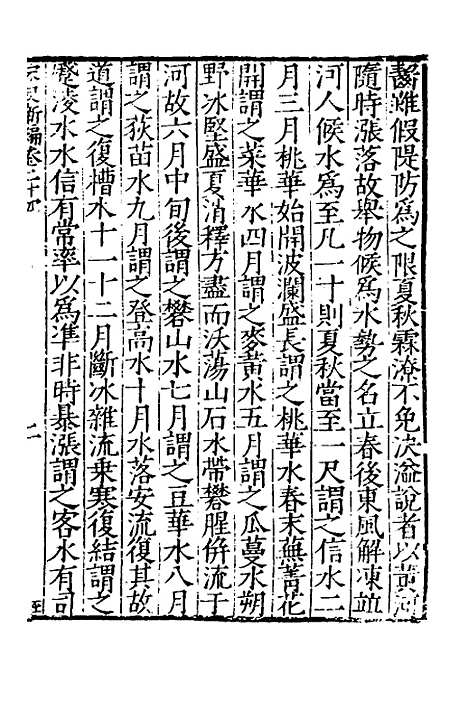 齧雖假隄防爲之限夏秋霖潦不免决溢說者以黄河
隨時漲落故舉物候爲水勢之名立春後東風解凍竝
河人候水爲至凡一十則夏秋當至一尺謂之信水二
月三月桃華始開波瀾盛長謂之桃華水春末蕪菁花
開謂之菜華水四月謂之麥黄水五月謂之瓜蔓水朔
野冰堅盛夏消釋方盡而沃蕩山石水帶礬腥倂流于
河故六月中旬後謂之礬山水七月謂之豆華水八月
謂之荻苗水九月謂之登高水十月水落安流復其故
道謂之復槽水十一十二月斷冰雜流乗寒復結謂之
蹙凌水水信有常率以爲準非時暴漲謂之客水有司
宋史新編卷二十四
二